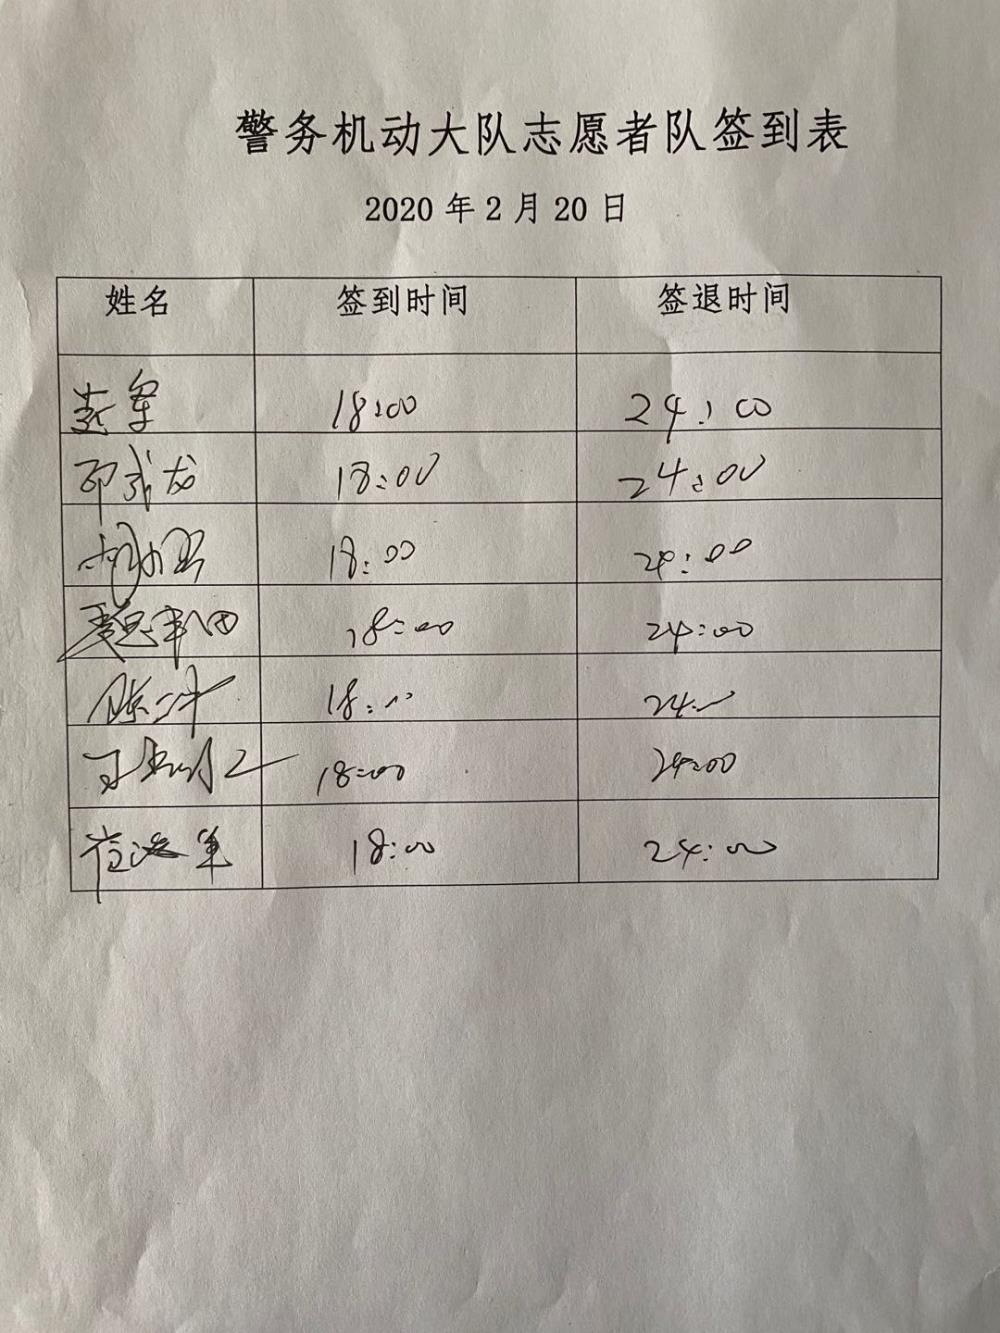 警务机动大队志愿者队签到表
2020 年 2 月 20 日
姓名 签到时间 签退时间
18:00 24:00
邵武龙 18:00 24:00
18:00 24:00
18:00 24:00
18: 24:
18:00 24:00
18:00 24:00